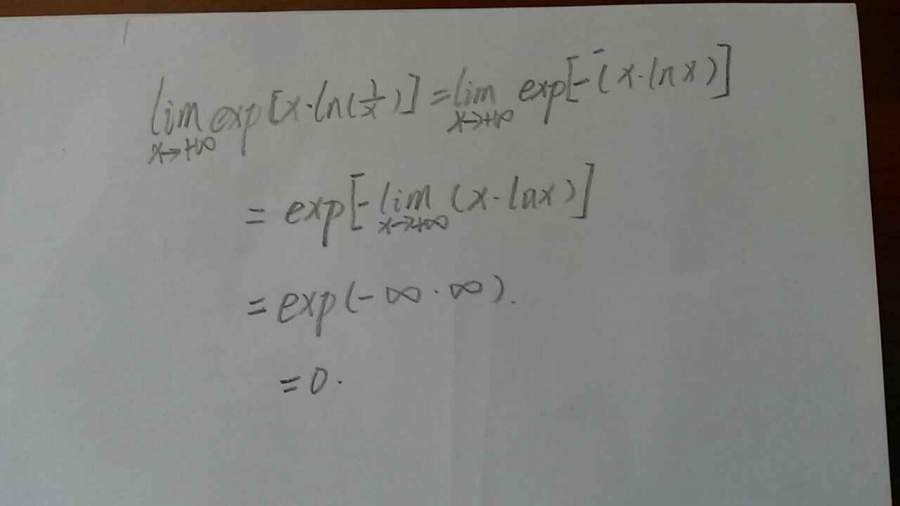 lim x→+∞ exp[x·ln(1/x)] = lim x→+∞ exp[-(x·lnx)]
= exp[-lim x→+∞ (x·lnx)]
= exp(-∞·∞).
= 0.